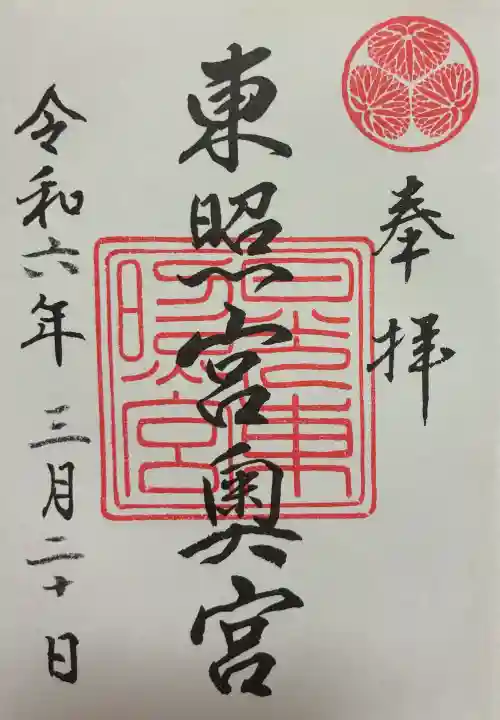 奉拝
東照宮奥宮
日光東照宮
令和六年三月二十日